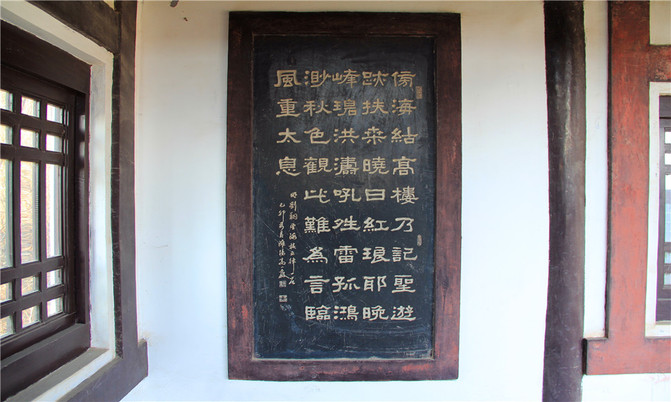 傍海結高樓乃記聖遊
跡扶桑曉日紅琅耶晚
峰碧洪濤吼雷孤鴻
渺秋色觀此難為言臨
風重太息
五律一首
乙卯